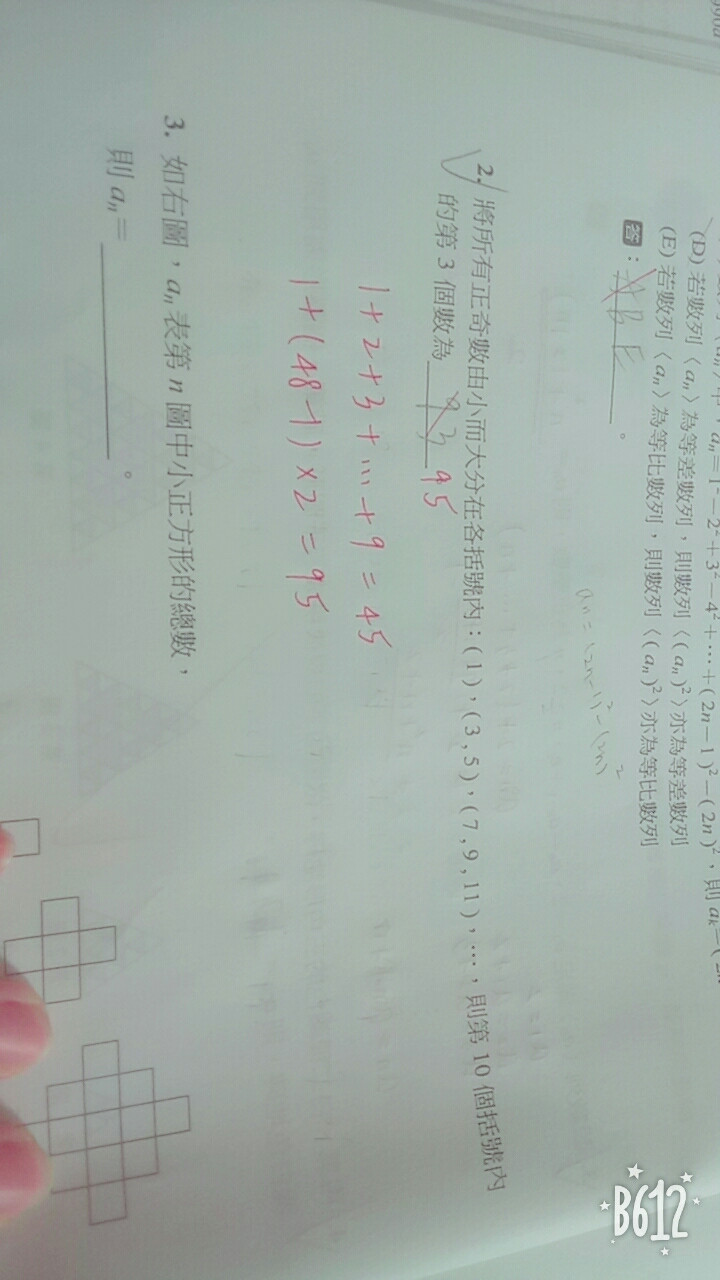 a_n = 1² − 2² + 3² − 4² + ⋯ + (2n − 1)² − (2n)²，則
(D) 若數列〈a_n〉為等差數列，則數列〈(a_n)²〉亦為等差數列
(E) 若數列〈a_n〉為等比數列，則數列〈(a_n)²〉亦為等比數列
a_n = (2n-1)² - (2n)²
答：。
2. 將所有正奇數由小而大分在各括號內：(1)，(3, 5)，(7, 9, 11)，⋯，則第 10 個括號內
的第 3 個數為 93 95
1+2+3+⋯+9=45
1+(48-1)×2=95
3. 如右圖，a_n 表第 n 圖中小正方形的總數，
則 a_n = 。
B612